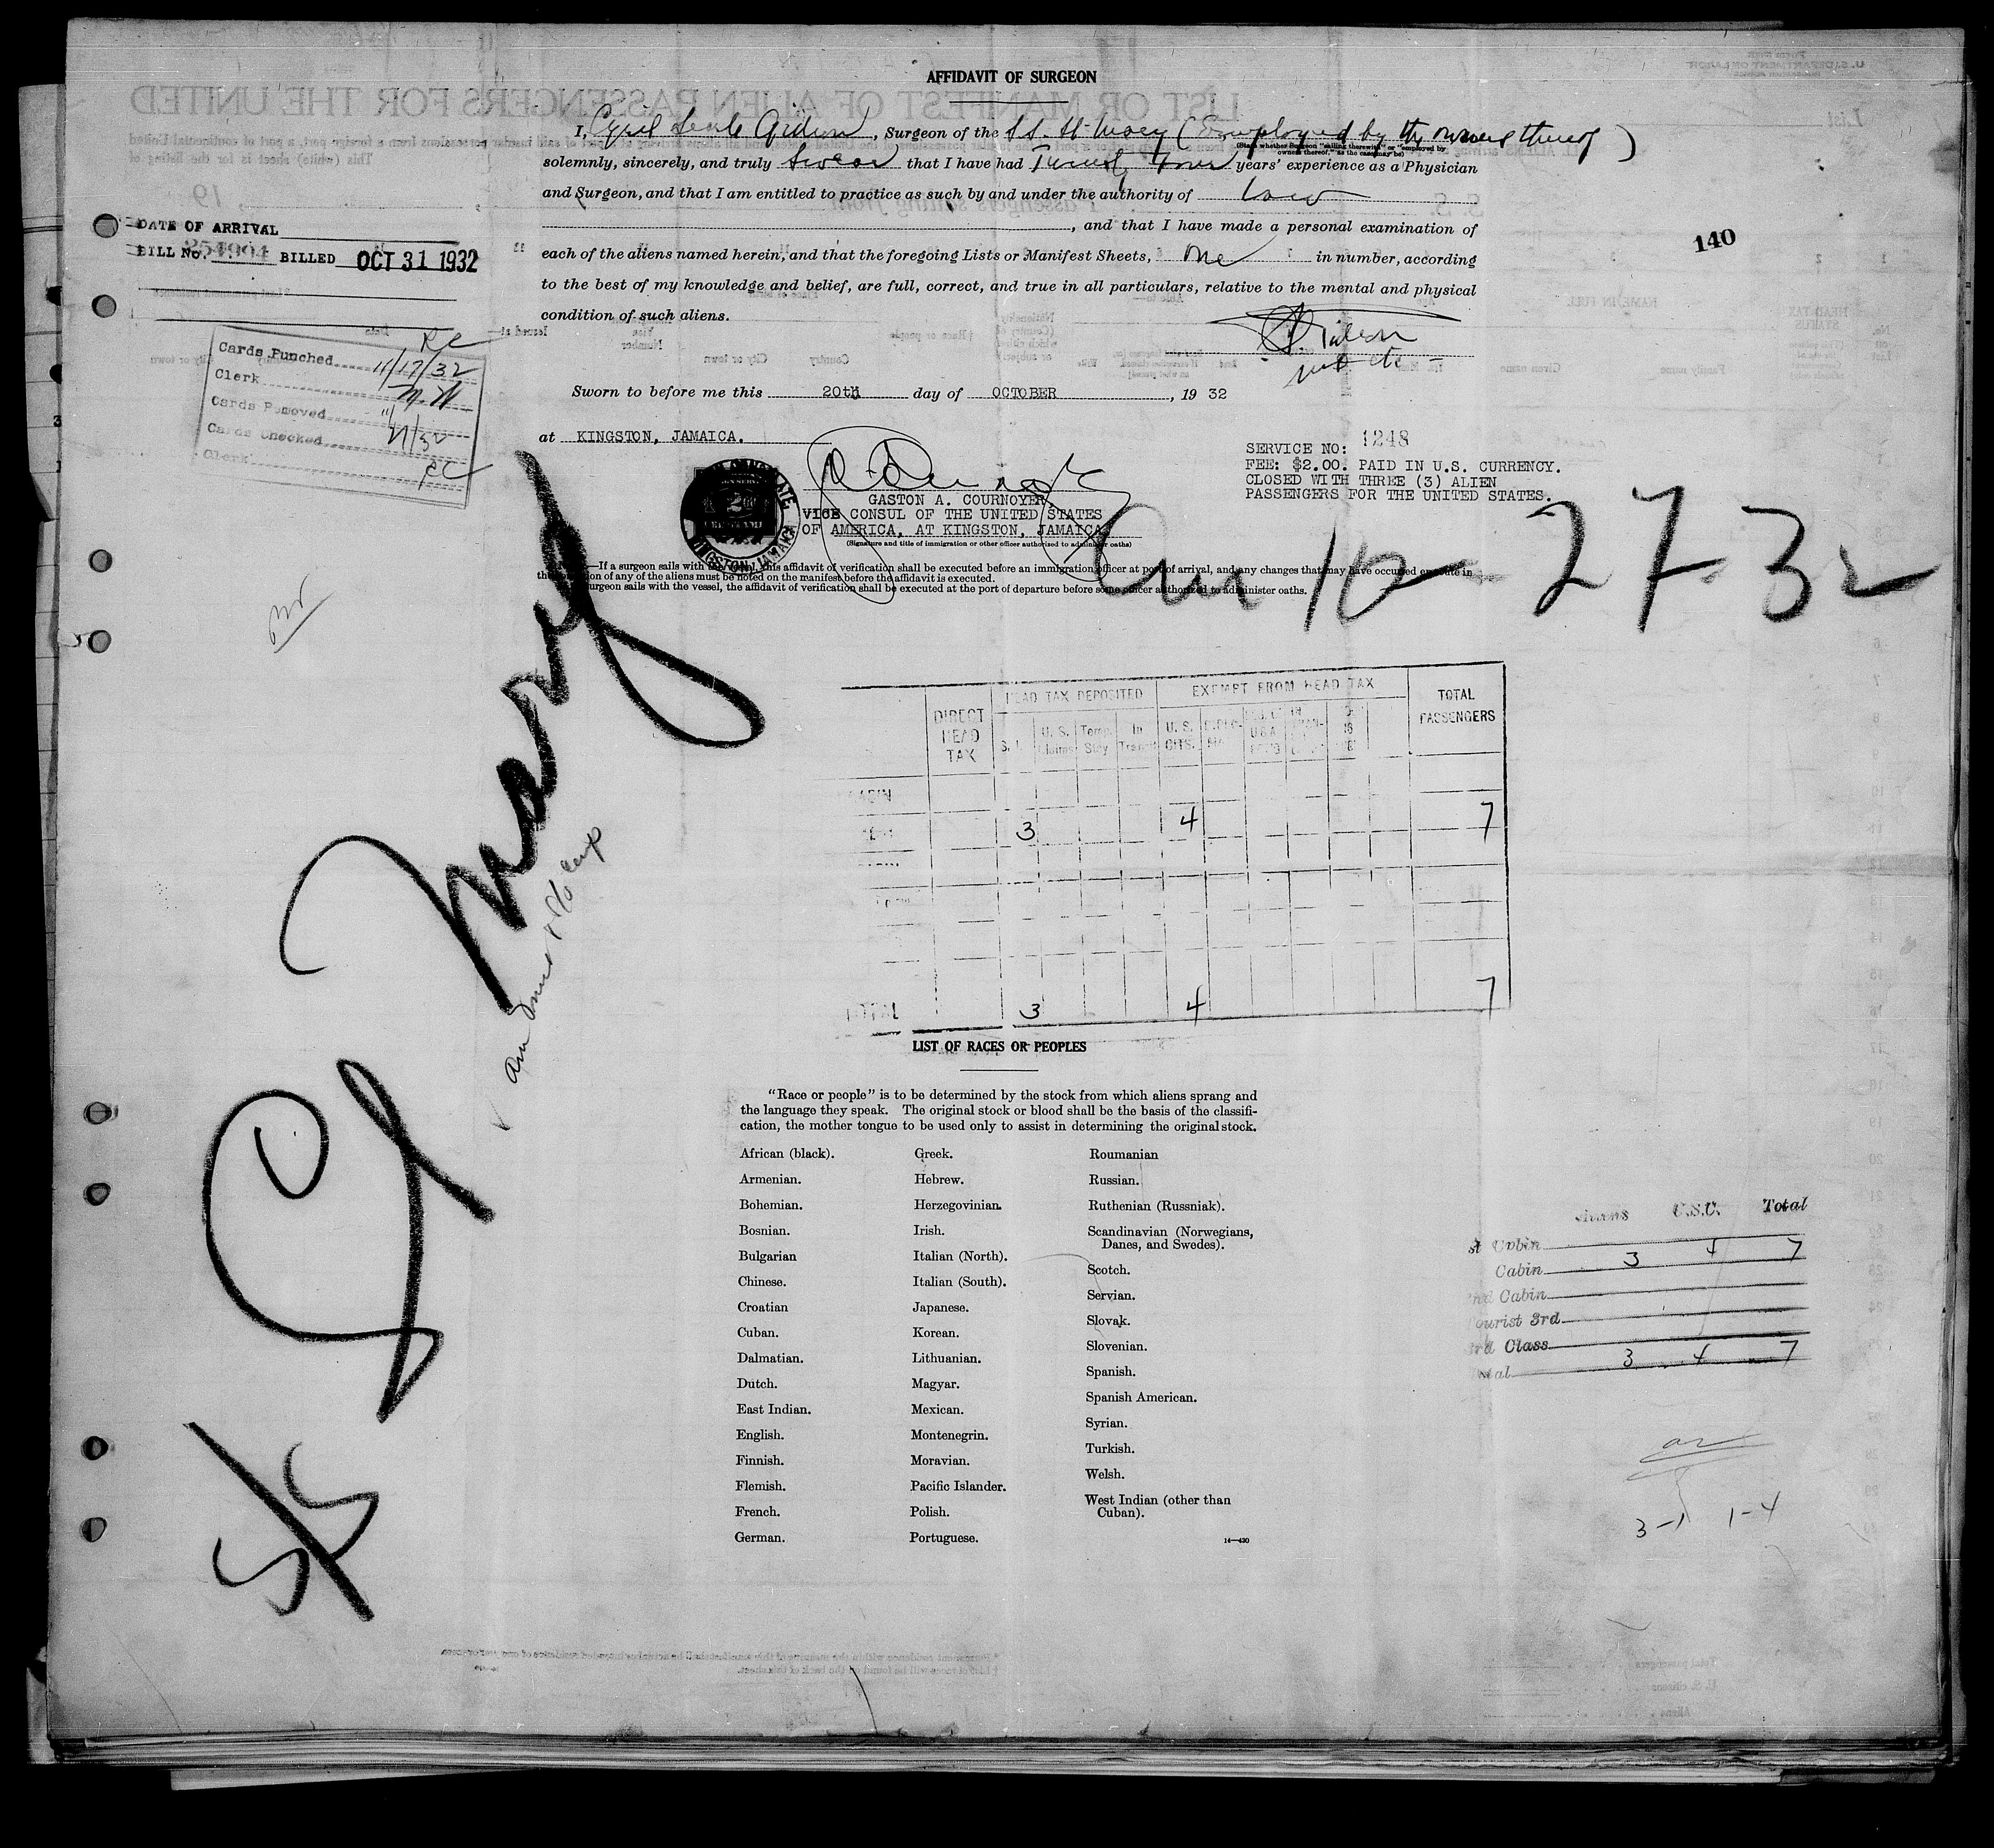 AFFIDAVIT OF SURGEON
I, Cyril Gideon, Surgeon of the S.S. St. Mary (Employed by the owners thereof)
(State whether Surgeon "sailing therewith" or "employed by
owners thereof," as the case may be)
solemnly, sincerely, and truly swear that I have had Twenty Four years' experience as a Physician
and Surgeon, and that I am entitled to practice as such by and under the authority of Law
, and that I have made a personal examination of
each of the aliens named herein, and that the foregoing Lists or Manifest Sheets, One in number, according
to the best of my knowledge and belief, are full, correct, and true in all particulars, relative to the mental and physical
condition of such aliens.
DATE OF ARRIVAL
BILL No. 254904 BILLED OCT 31 1932
140
RC
Cards Punched 11/17/32
Clerk M.M
Cards Removed
Cards Checked
Clerk RC
Sworn to before me this 20th day of OCTOBER, 19 32
at KINGSTON, JAMAICA.
SERVICE NO: 1248
FEE: $2.00. PAID IN U.S. CURRENCY.
CLOSED WITH THREE (3) ALIEN
PASSENGERS FOR THE UNITED STATES.
GASTON A. COURNOYER
VICE CONSUL OF THE UNITED STATES
OF AMERICA, AT KINGSTON, JAMAICA
(Signature and title of immigration or other officer authorized to administer oaths)
KINGSTON, JAMAICA
—If a surgeon sails with the vessel, this affidavit of verification shall be executed before an immigration officer at port of arrival, and any changes that may have occurred en route in
the condition of any of the aliens must be noted on the manifest before the affidavit is executed.
surgeon sails with the vessel, the affidavit of verification shall be executed at the port of departure before some officer authorized to administer oaths.
10-27-32
S/S St Mary
DIRECT HEAD TAX
HEAD TAX DEPOSITED
EXEMPT FROM HEAD TAX
TOTAL PASSENGERS
U. S. Claims
Temp. Stay
In Transit
U. S. CITS.
CABIN
3 4 7
TOTAL 3 4 7
LIST OF RACES OR PEOPLES
"Race or people" is to be determined by the stock from which aliens sprang and
the language they speak. The original stock or blood shall be the basis of the classifi-
cation, the mother tongue to be used only to assist in determining the original stock.
African (black).
Armenian.
Bohemian.
Bosnian.
Bulgarian
Chinese.
Croatian
Cuban.
Dalmatian.
Dutch.
East Indian.
English.
Finnish.
Flemish.
French.
German.
Greek.
Hebrew.
Herzegovinian.
Irish.
Italian (North).
Italian (South).
Japanese.
Korean.
Lithuanian.
Magyar.
Mexican.
Montenegrin.
Moravian.
Pacific Islander.
Polish.
Portuguese.
Roumanian
Russian.
Ruthenian (Russniak).
Scandinavian (Norwegians,
Danes, and Swedes).
Scotch.
Servian.
Slovak.
Slovenian.
Spanish.
Spanish American.
Syrian.
Turkish.
Welsh.
West Indian (other than
Cuban).
14—430
Aliens U.S.C. Total
st Cabin
Cabin 3 4 7
2nd Cabin
Tourist 3rd
3rd Class
Total 3 4 7
3-1 1-4